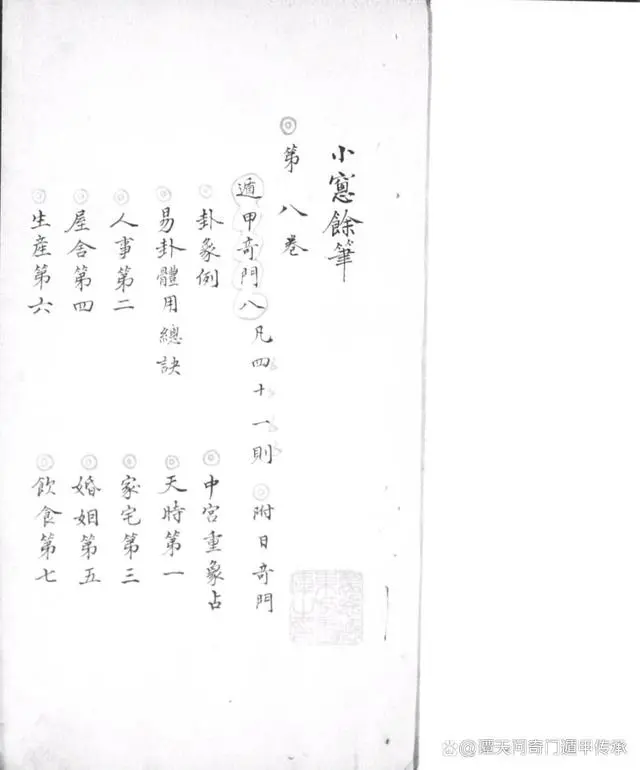 小窻餘筆
第八卷
遁甲奇門八 凡四十一則 附日奇門
卦象例 中宮重象占
易卦體用總訣 天時第一
人事第二 家宅第三
屋舍第四 婚姻第五
生產第六 飲食第七
譚天阿奇门遁甲传承